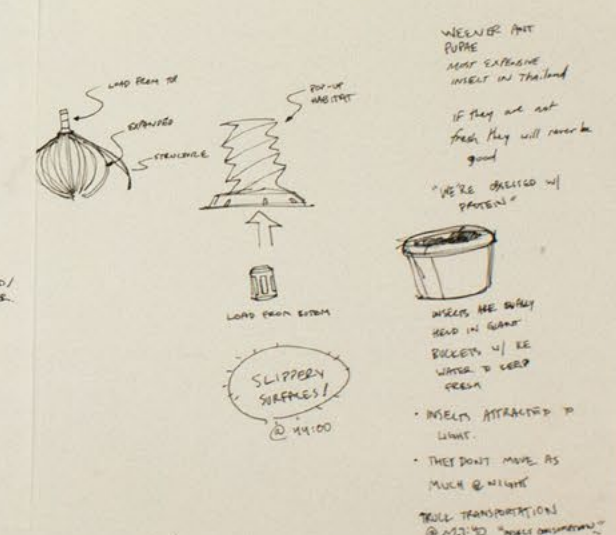 LOAD FROM TOP
EXPANDED
STRUCTURE
POP-UP
HABITAT
LOAD FROM BOTTOM
SLIPPERY
SURFACES!
@ 44:00
WEENER ANT
PUPAE
MOST EXPENSIVE
INSECT IN Thailand
IF they are not
fresh they will never be
good
"WE'RE OBSESSED W/
PROTEIN"
INSECTS ARE
HELD IN GIANT
BUCKETS W/ ICE
WATER TO KEEP
FRESH
• INSECTS ATTRACTED TO
LIGHT.
• THEY DON'T MOVE AS
MUCH @ NIGHT
TRUCK TRANSPORTATION